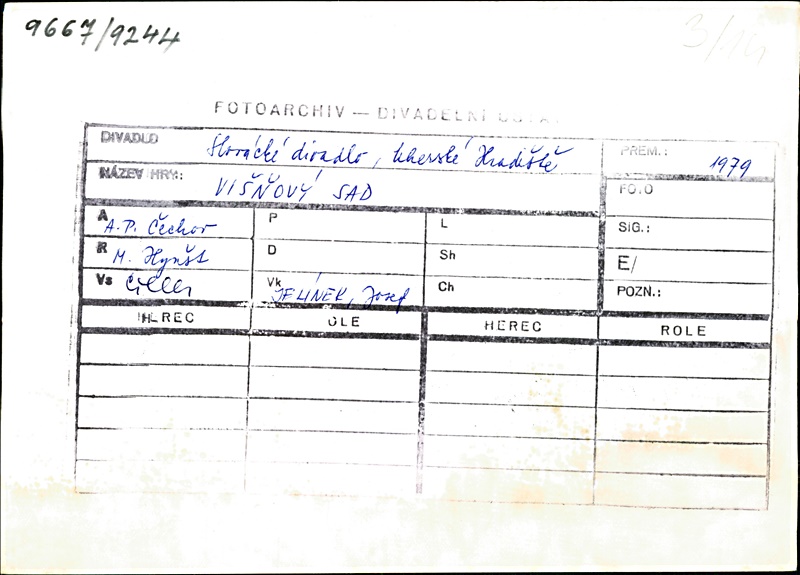 9667/9244
3/14
FOTOARCHIV — DIVADELNÍ
DIVADLO Slovácké divadlo, Uherské Hradiště
PREM.: 1979
NÁZEV HRY: VIŠŇOVÝ SAD
FOTO
A A.P. Čechov
P
L
SIG.:
R M. Hynšt
D
Sh
E/
Vs Ciller
Vk JELÍNEK, Josef
Ch
POZN.:
HEREC ROLE HEREC ROLE